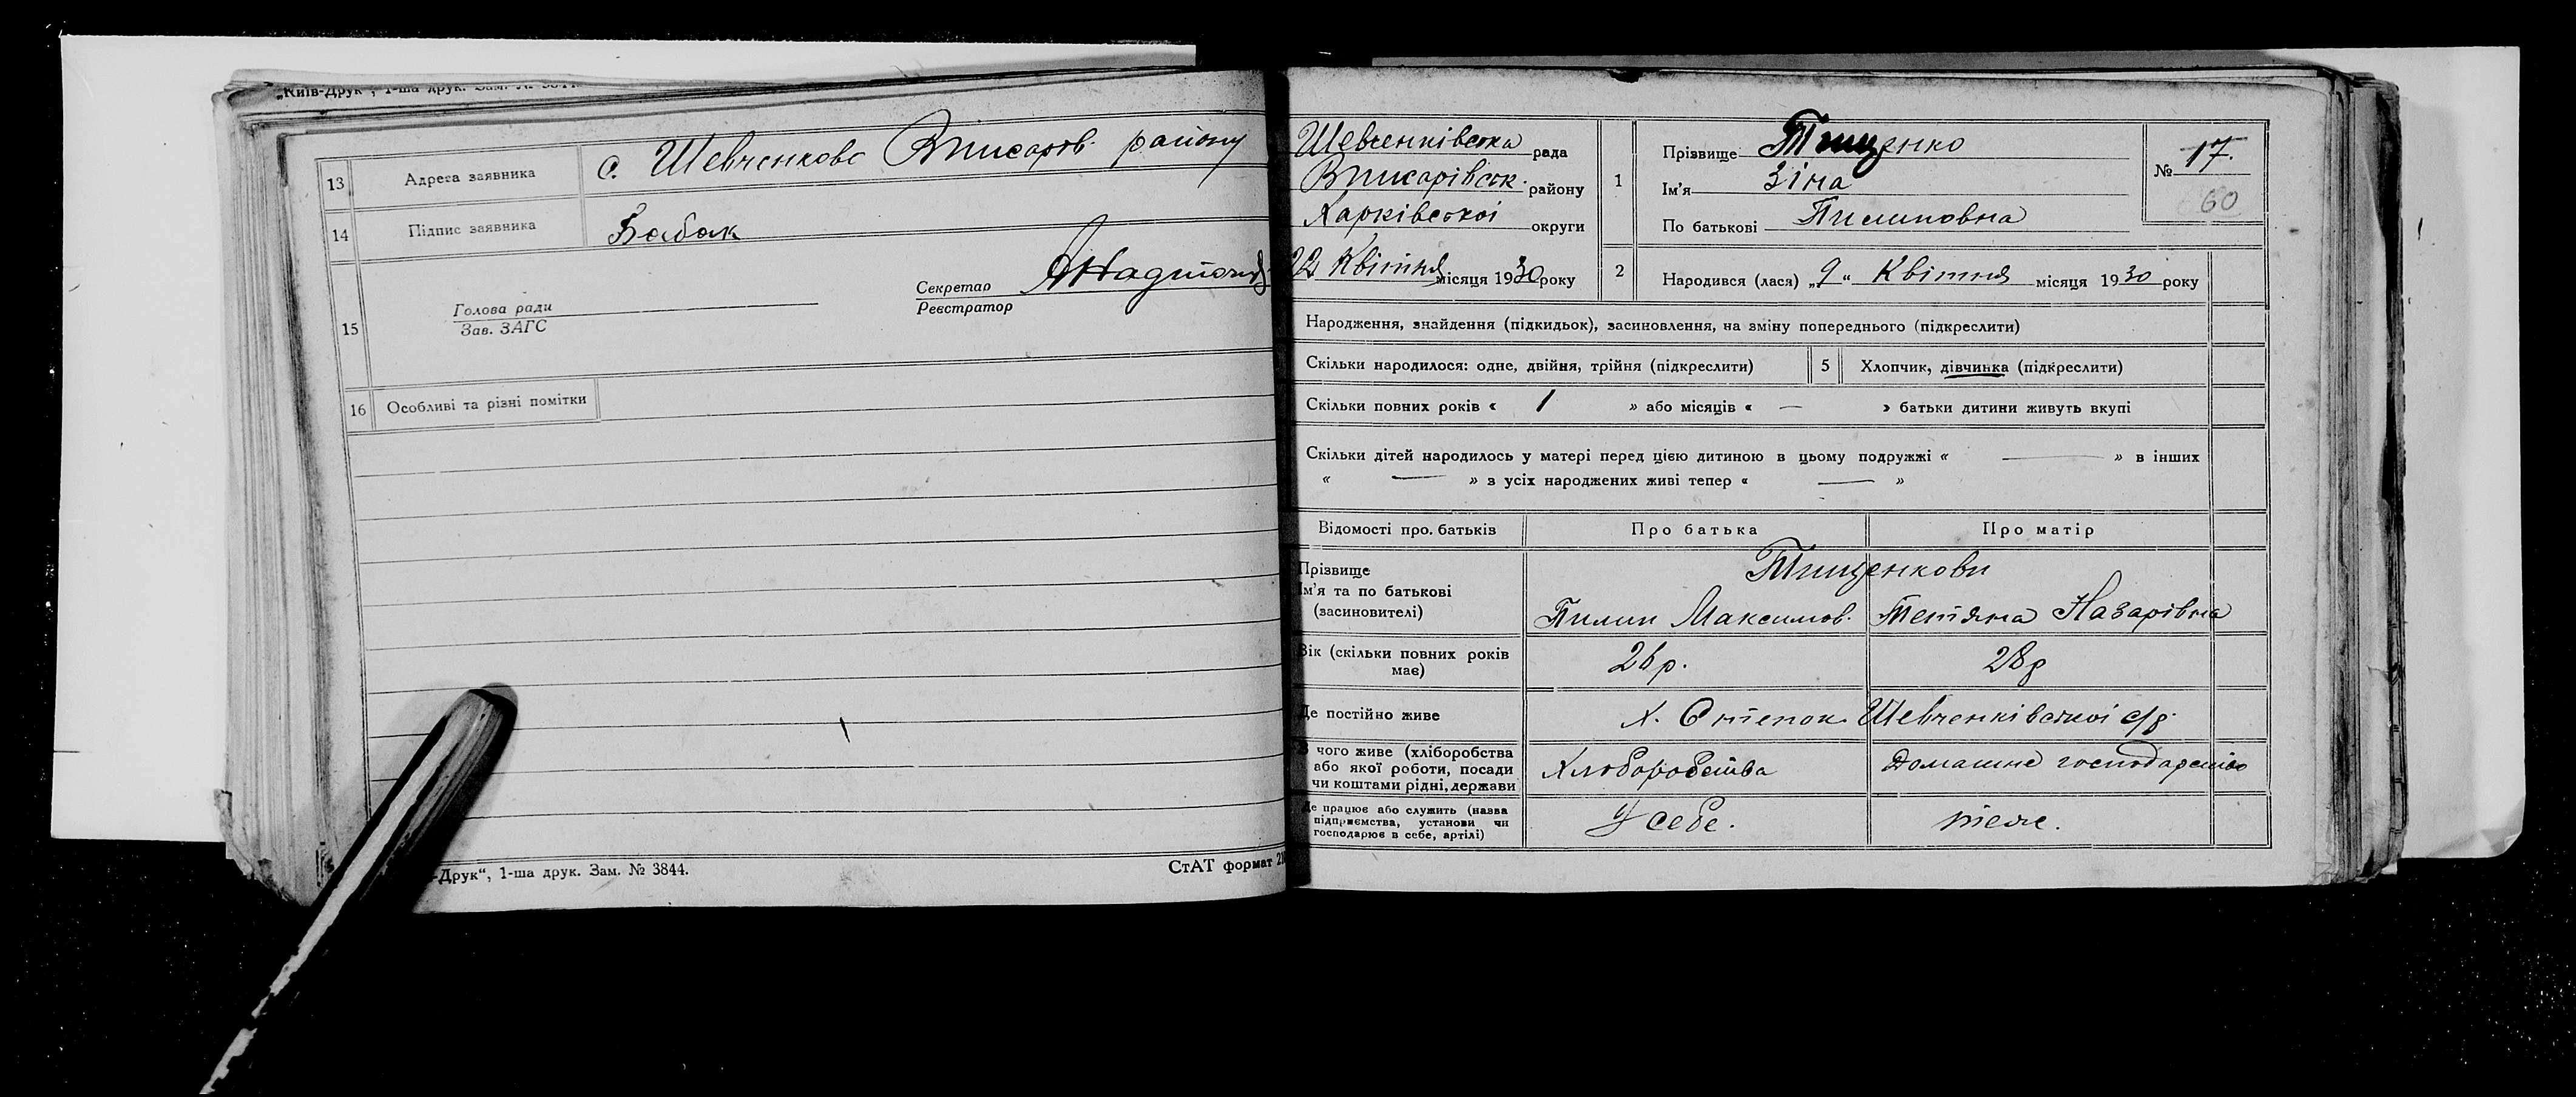 „Київ-Друк", 1-ша друк. Зам. №
13 Адреса заявника с. Шевченково Вписаров. району
14 Підпис заявника Бабак
15 Голова ради
Зав. ЗАГС
Секретар
Реєстратор
16 Особливі та різні помітки
-Друк", 1-ша друк. Зам. № 3844.
СтАТ формат
Шевченківська рада
Вписарівськ. району
Харківської округи
22 Квітня місяця 1930 року
1 Прізвище Тищенко
Ім'я Зіна
По батькові Пилиповна
№ 17.
60
2 Народився (лася) „9" Квітня місяця 1930 року
Народження, знайдення (підкидьок), засиновлення, на зміну попереднього (підкреслити)
Скільки народилося: одне, двійня, трійня (підкреслити) 5 Хлопчик, дівчинка (підкреслити)
Скільки повних років « 1 » або місяців « — » батьки дитини живуть вкупі
Скільки дітей народилось у матері перед цією дитиною в цьому подружжі « — » в інших
« — » з усіх народжених живі тепер « — »
Відомості про батьків Про батька Про матір
Прізвище Тищенкови
Ім'я та по батькові
(засиновителі) Пилип Максимов. Тетяна Назарівна
Вік (скільки повних років
має) 26 р. 28 р
Де постійно живе х. Степок Шевченківської с/р.
З чого живе (хліборобства
або якої роботи, посади
чи коштами рідні, держави Хліборобства Домашнє господарство
Де працює або служить (назва
підприємства, установи чи
господарює в себе, артілі) У себе. теже.